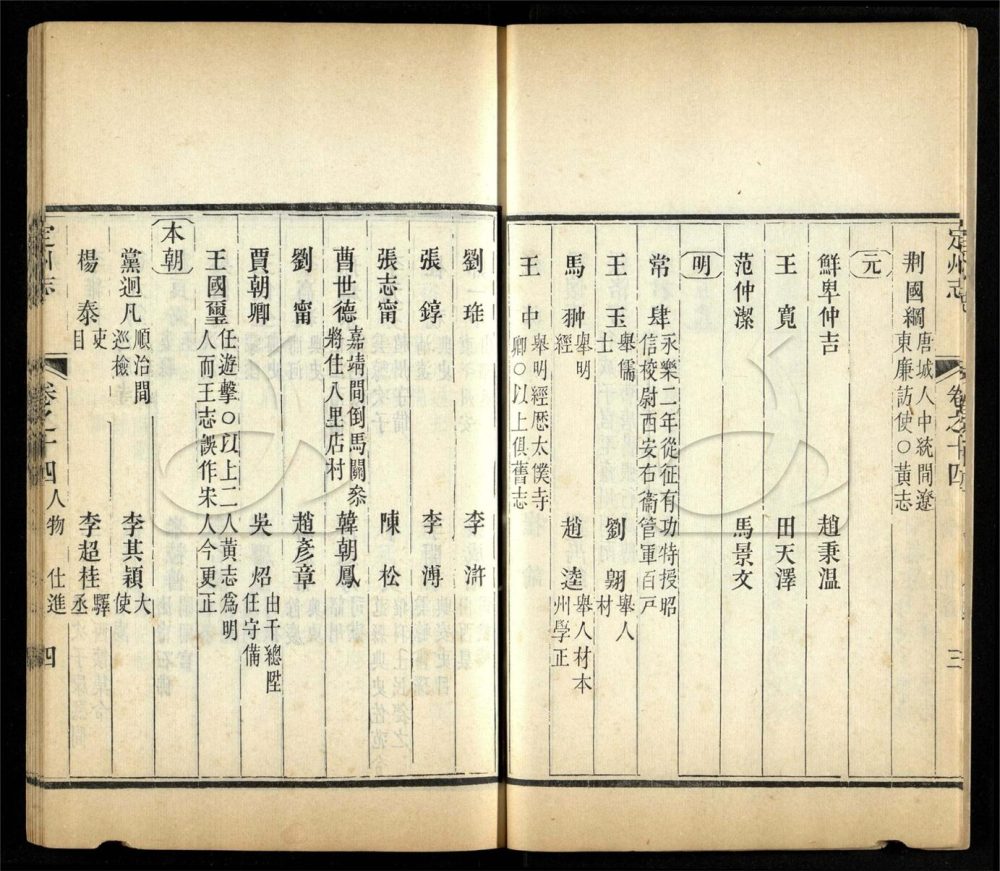 定州志
卷之十四
三
荆國綱唐城人中統間遼東廉訪使〇黄志
元
鮮卑仲吉 趙秉温
王寛 田天澤
范仲潔 馬景文
明
常肆永樂二年從征有功特授昭信校尉西安右衞管軍百戸
王玉舉儒士 劉翺舉人材
馬翀舉明經 趙逵舉人材本州學正
王中舉明經歷太僕寺卿〇以上俱舊志
劉琟 李滸
張錞 李溥
張志甯 陳松
曹世德嘉靖間倒馬關叅將住八里店村 韓朝鳳
劉甯 趙彦章
賈朝卿 吳炤由千總陞任守備
王國璽任遊擊〇以上二人黄志爲明人而王志誤作宋人今更正
本朝
黨迴凡順治間巡檢 李其穎大使
楊泰吏目 李超桂驛丞
定州志
卷之十四 人物 仕進
四